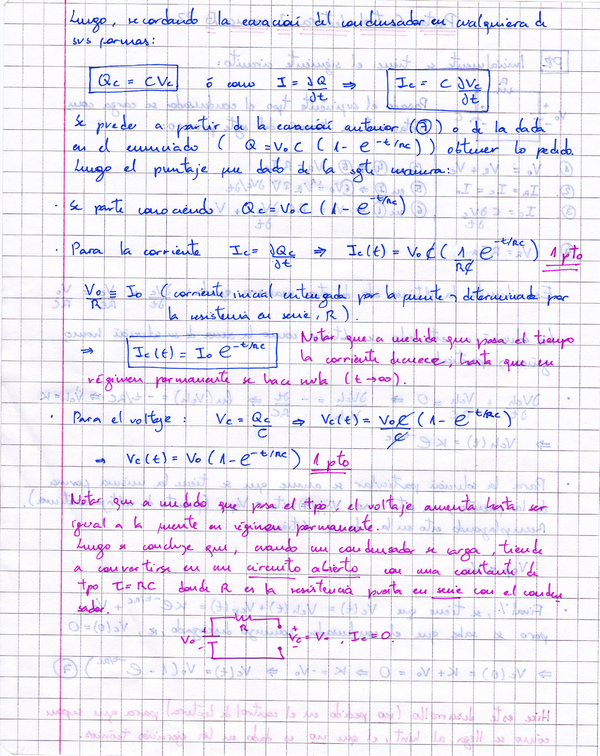 Luego, recordando la ecuación del condensador en cualquiera de
sus formas:
Qc = CVc ó como I = ∂Q/∂t ⇒ Ic = C ∂Vc/∂t
Se puede a partir de la ecuación anterior (⑦) o de la dada
en el enunciado ( Q = VoC (1 - e^-t/RC) ) obtener lo pedido.
Luego el puntaje fue dado de la sgte manera:
· Se parte conociendo Qc = VoC (1 - e^-t/RC)
· Para la corriente Ic = ∂Qc/∂t ⇒ Ic(t) = Vo C (1/RC e^-t/RC) 1 pto
Vo/R ≡ Io (corriente inicial entregada por la fuente y determinada por
la resistencia en serie, R).
⇒ Ic(t) = Io e^-t/RC Notar que a medida que pasa el tiempo
la corriente decrece, hasta que en
régimen permanente se hace nula (t→∞).
· Para el voltaje : Vc = Qc/C ⇒ Vc(t) = VoC/C (1 - e^-t/RC)
⇒ Vc(t) = Vo (1 - e^-t/RC) 1 pto
Notar que a medida que pasa el tpo, el voltaje aumenta hasta ser
igual a la fuente en régimen permanente.
Luego se concluye que, cuando un condensador se carga, tiende
a convertirse en un circuito abierto con una constante de
tpo τ = RC donde R es la resistencia puesta en serie con el conden
sador.
R
Vo + - + Vc = Vo , Ic = 0.
-